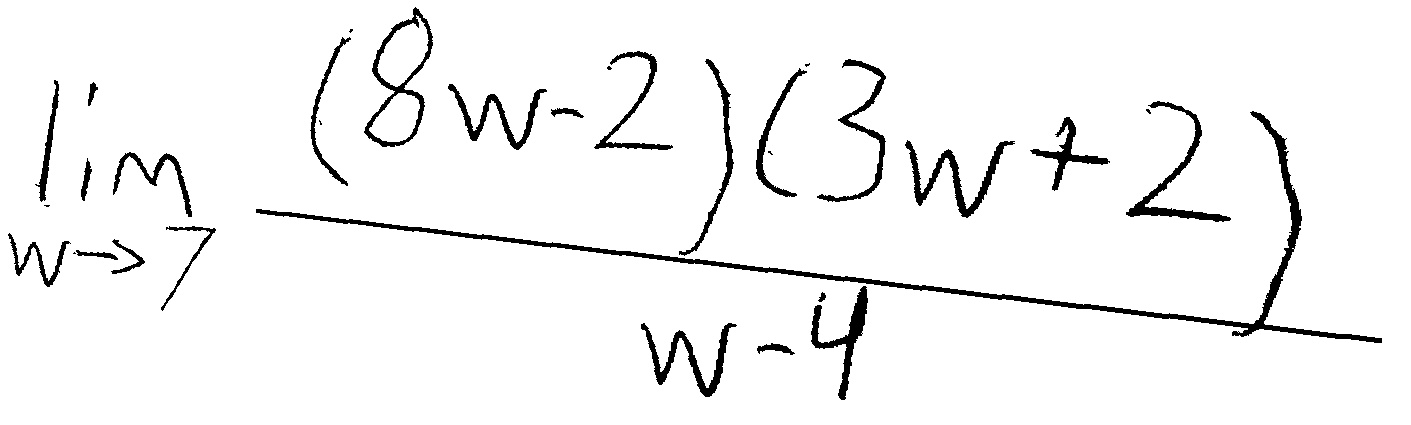 \lim_{w \to 7} \frac{(8w-2)(3w+2)}{w-4}